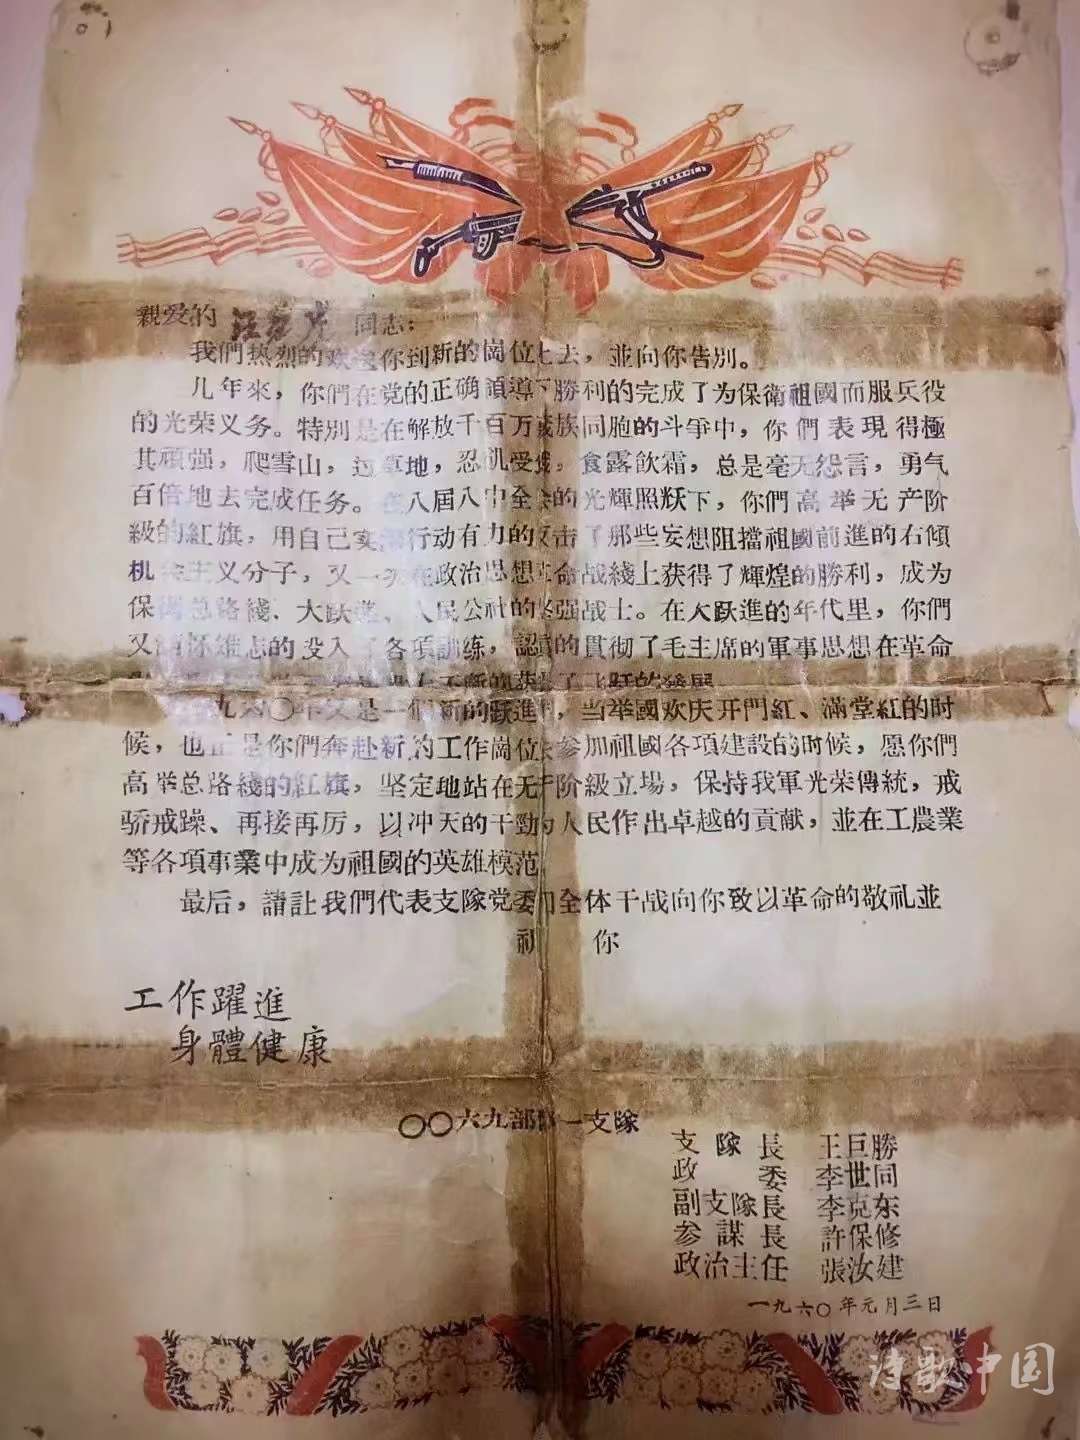 親爱的 同志：
我們热烈的欢送你到新的崗位上去，並向你告別。
几年來，你們在党的正确領導下勝利的完成了为保衛祖國而服兵役
的光荣义务。特別是在解放千百万藏族同胞的斗爭中，你們表現得極
其頑强，爬雪山，过草地，忍飢受餓，食露飲霜，总是毫无怨言，勇气
百倍地去完成任务。在八屆八中全会的光輝照耀下，你們高举无产阶
級的紅旗，用自己实际行动有力的反击了那些妄想阻擋祖國前進的右傾
机会主义分子，又一次在政治思想革命战綫上获得了輝煌的勝利，成为
保衛总路綫、大跃進、人民公社的坚强战士。在大跃進的年代里，你們
又滿怀雄志的投入了各項訓练，認真的貫彻了毛主席的軍事思想在革命
了飞跃的發展。
一九六〇年又是一個新的跃進年，当举國欢庆开門紅、滿堂紅的时
候，也正是你們奔赴新的工作崗位去参加祖國各項建設的时候，愿你們
高举总路綫的紅旗，坚定地站在无产阶級立場，保持我軍光荣傳統，戒
骄戒躁、再接再厉，以冲天的干勁为人民作出卓越的貢献，並在工農業
等各項事業中成为祖國的英雄模范
最后，請註我們代表支隊党委和全体干战向你致以革命的敬礼並
祝 你
工作躍進
身體健康
〇〇六九部隊一支隊
支隊長 王巨勝
政委 李世同
副支隊長 李克东
参謀長 許保修
政治主任 張汝建
一九六〇年元月三日
诗歌中国